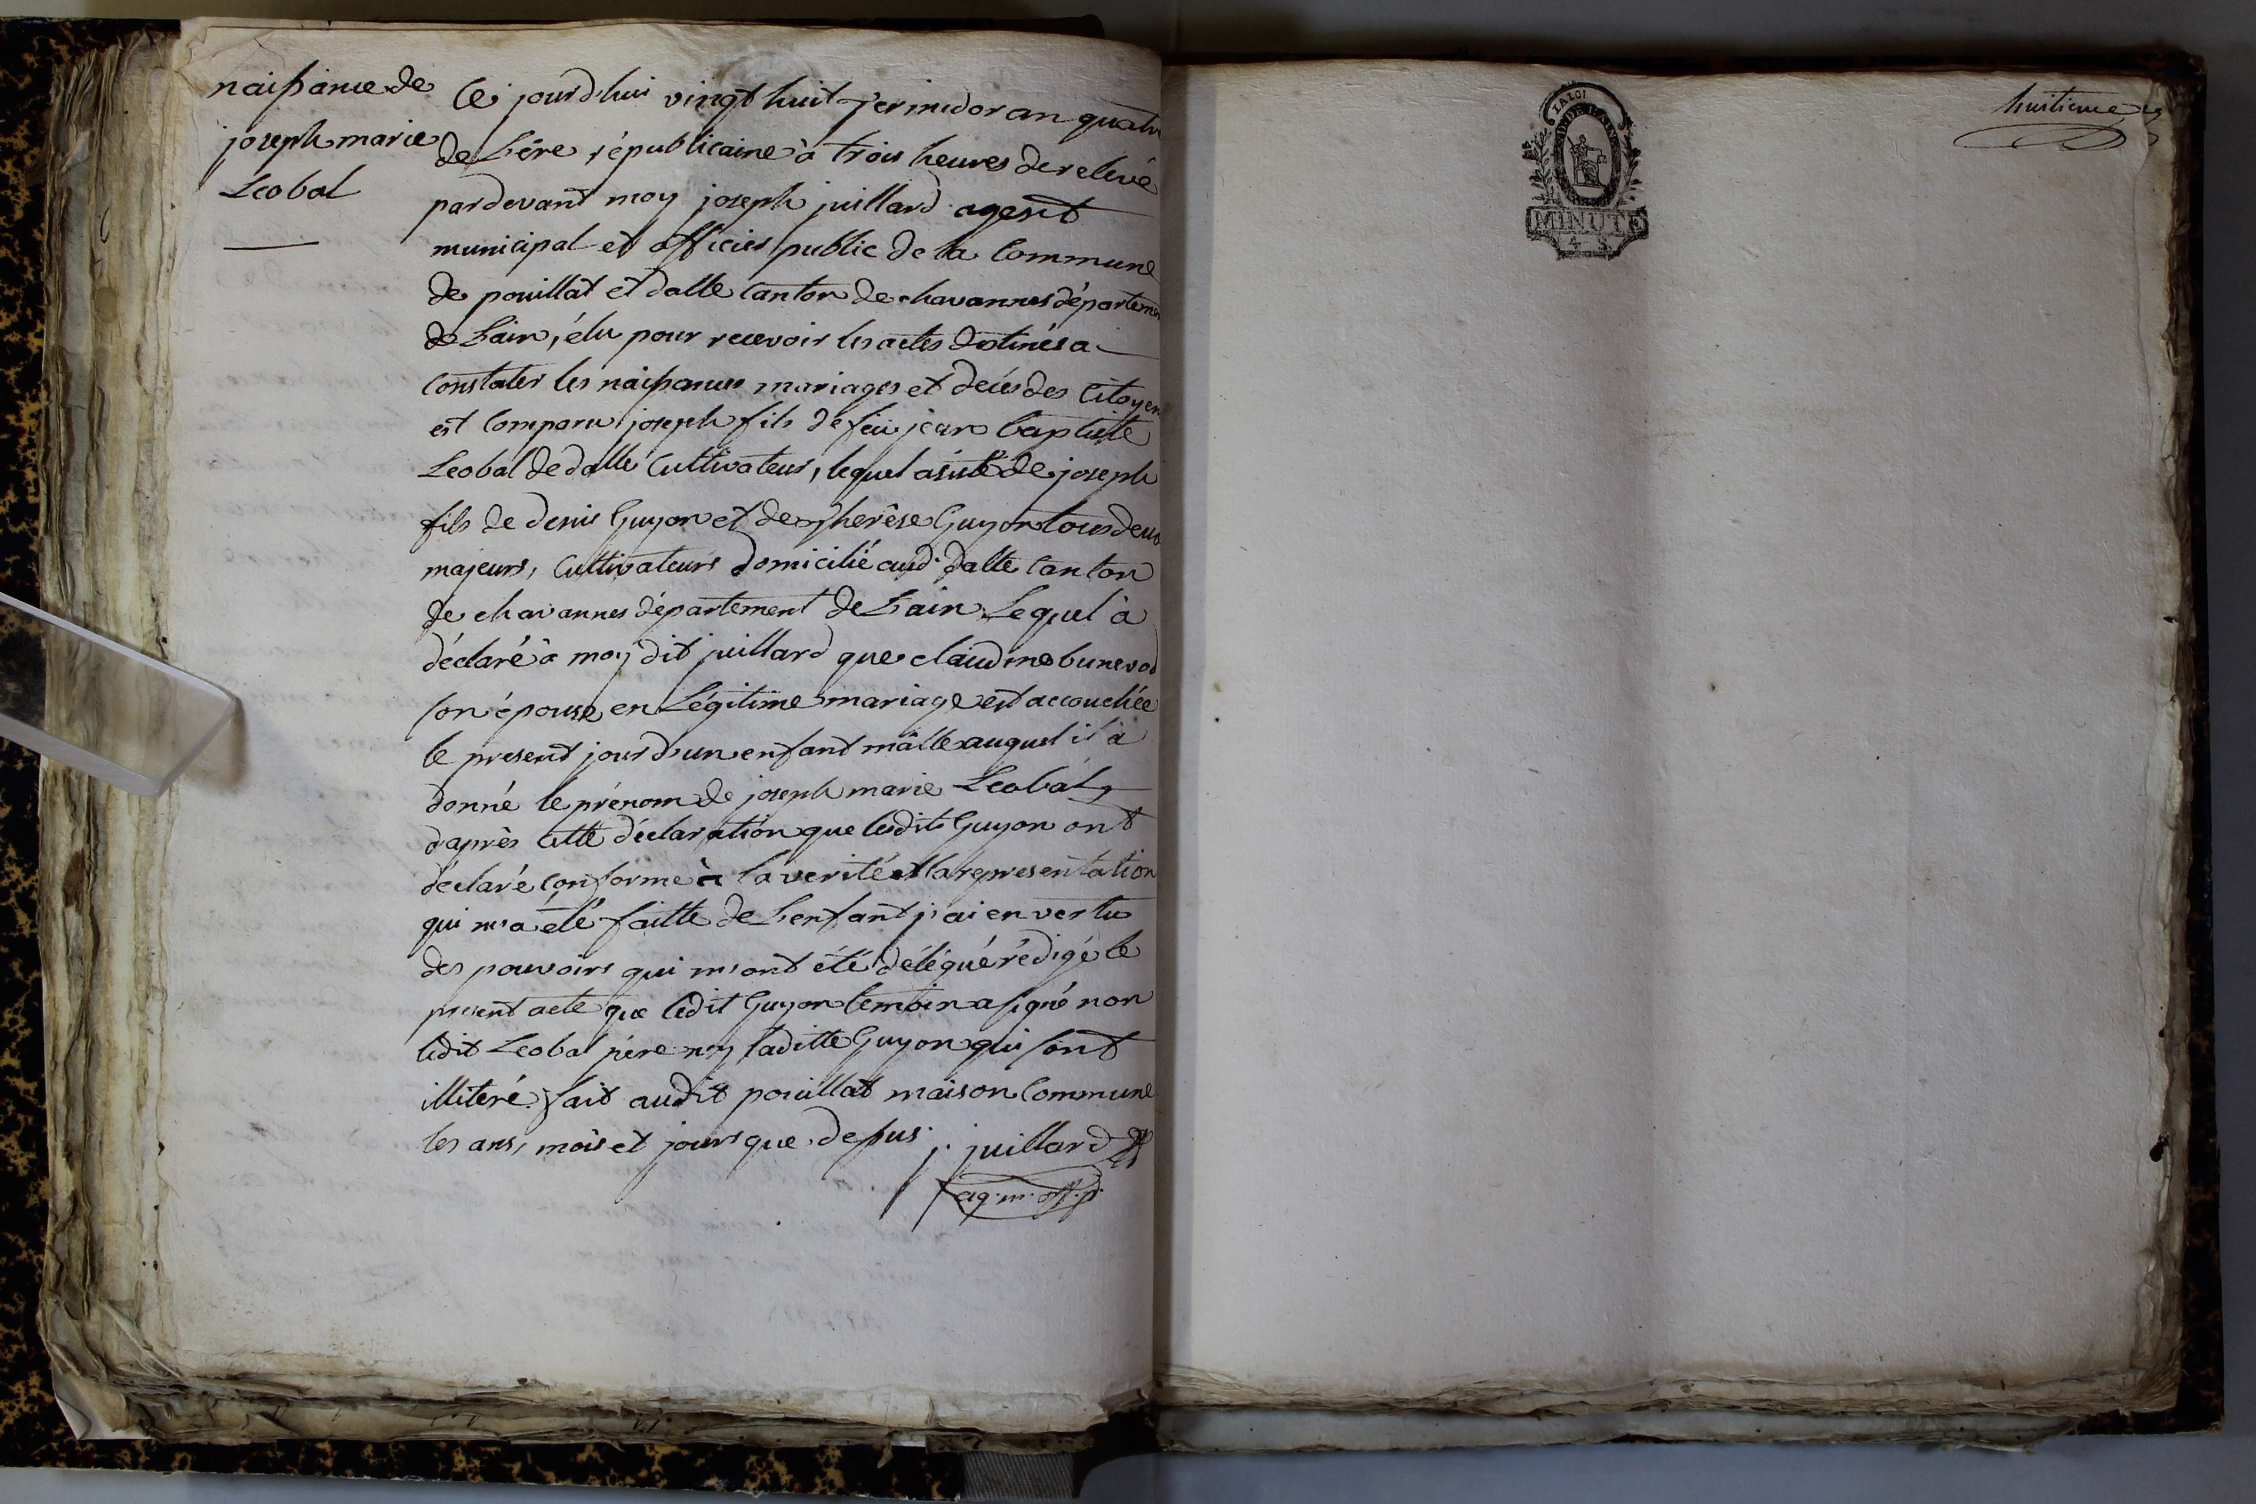 naissance de
joseph marie
Leobal
Ce jourd'hui vingt huit Termidor an quatre
de Lére républicaine à trois heures de relevé
pardevant moy joseph juillard agent
municipal et officier public de la Commune
de pouillat et dalle Canton de chavannes départemen
de Lain, élu pour recevoir les actes destinés a
Constater les naissances mariages et décès des Citoyen
est Comparu joseph fils de feu jean baptiste
Leobal de dalle Cultivateur, lequel asisté de joseph
fils de denis Guyon et de therêse Guyon tous deux
majeurs, Cultivateurs domicilié aud. dalle Canton
de chavannes département de Lain Lequel à
déclaré à moy dit juillard que claudine bunevod
son épouse en Légitime mariage est accouchée
le present jour d'un enfant mâlle auquel il à
donné le prénom de joseph marie Leobal,
d'après cette déclaration que lesdits Guyon ont
déclaré conforme à la verité et la representation
qui m'a été faitte de Lenfant j'ai en vertu
des pouvoirs qui m'ont été délégué rédigé le
present acte que ledit Guyon temoin a signé non
ledit Leobal pére ny laditte Guyon qui sont
illiteré. fait audit pouillat maison Commune
les ans, mois et jours que dessus.
j. juillard
ag. m. off. p.
LA LOI
MINUTE
4 S
huitieme